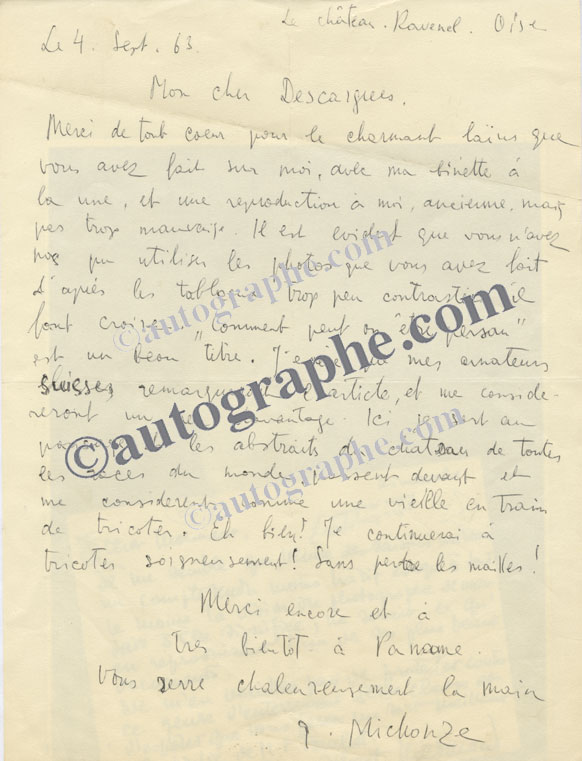 Le château. Ravenel. Oise
Le 4. Sept. 63.
Mon cher Descargues.
Merci de tout coeur pour le charmant laïus que
vous avez fait sur moi, avec ma binette à
la une, et une reproduction à moi, ancienne, mais
pas trop mauvaise. Il est evident que vous n'avez
pas pu utiliser les photos que vous avez fait
d'après les tableaux trop peu contrastés, il
faut croire. "Comment peut on être persan"
est un beau titre. J'es mes amateurs
suisses remarqueront l'article, et me conside-
reront un davantage. Ici au
les abstraits du chateau de toutes
les races du monde passent devant et
me considerent comme une vieille en train
de tricoter. Eh bien! Je continuerai à
tricoter soigneusement! Sans perdre les mailles!
Merci encore et à
tres bientôt à Paname.
Vous serre chaleureusement la main
G. Michonze
©autographe.com
©autographe.com
©autographe.com